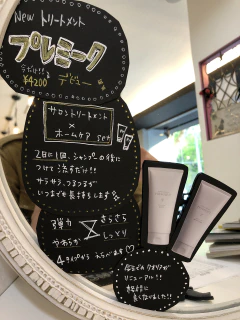 New トリートメント
プレミーク
うだけ!!
¥4200 デビュー
サロントリートメント
×
ホームケア set
2日に1回、シャンプーの後に
つけて流すだけ!!
サラサラ、つるつるが
いつまでも長持ちします
弾力 さらさら
やわらか しっとり
4タイプからえらべます♡
今までの クオリアが
リニューアル!!
更に
良くなりました!!